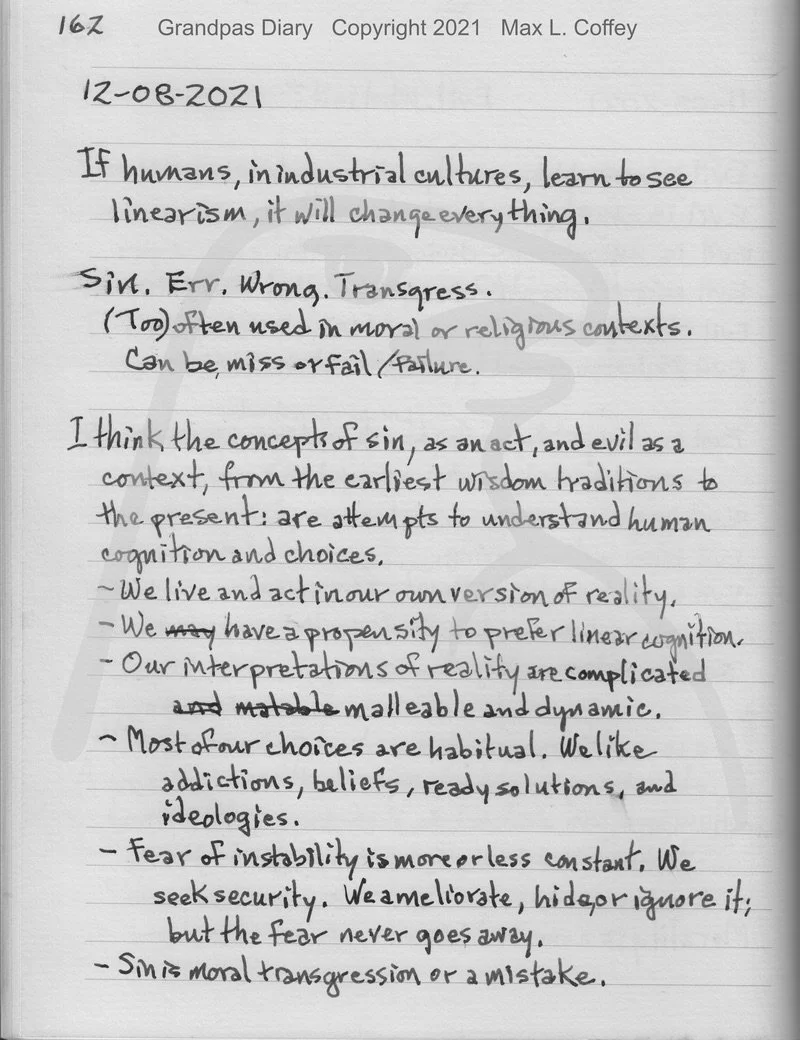 162 Grandpas Diary Copyright 2021 Max L. Coffey
12-08-2021
If humans, in industrial cultures, learn to see
linearism, it will change everything.
Sin. Err. Wrong. Transgress.
(Too) often used in moral or religious contexts.
Can be, miss or fail/failure.
I think the concepts of sin, as an act, and evil as a
context, from the earliest wisdom traditions to
the present: are attempts to understand human
cognition and choices.
~ We live and act in our own version of reality.
- We may have a propensity to prefer linear cognition.
- Our interpretations of reality are complicated
and matable malleable and dynamic.
~ Most of our choices are habitual. We like
addictions, beliefs, ready solutions, and
ideologies.
- Fear of instability is more or less constant. We
seek security. We ameliorate, hide, or ignore it;
but the fear never goes away.
- Sin is moral transgression or a mistake.